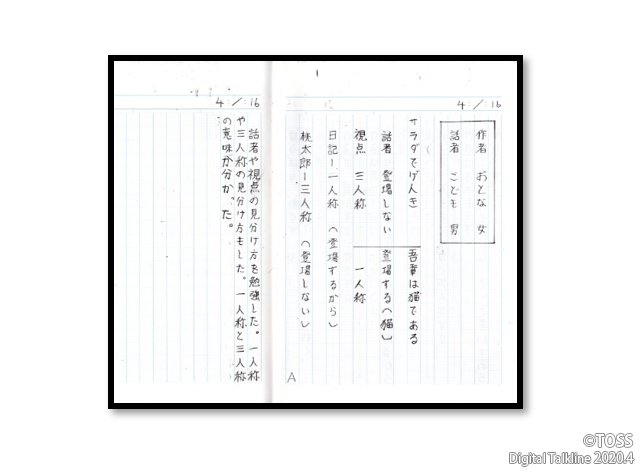 4／16
作者　おとな　女
話者　こども　男
サラダでげんき　吾輩は猫である
話者　登場しない　登場する(猫)
視点　三人称　一人称
日記ー一人称　(登場するから)
桃太郎ー三人称　(登場しない)
A
4／16
話者や視点の見分け方を勉強した。一人称
や三人称の見分け方もした。一人称と三人称
の意味が分かった。
©TOSS
Digital Talkline 2020.4